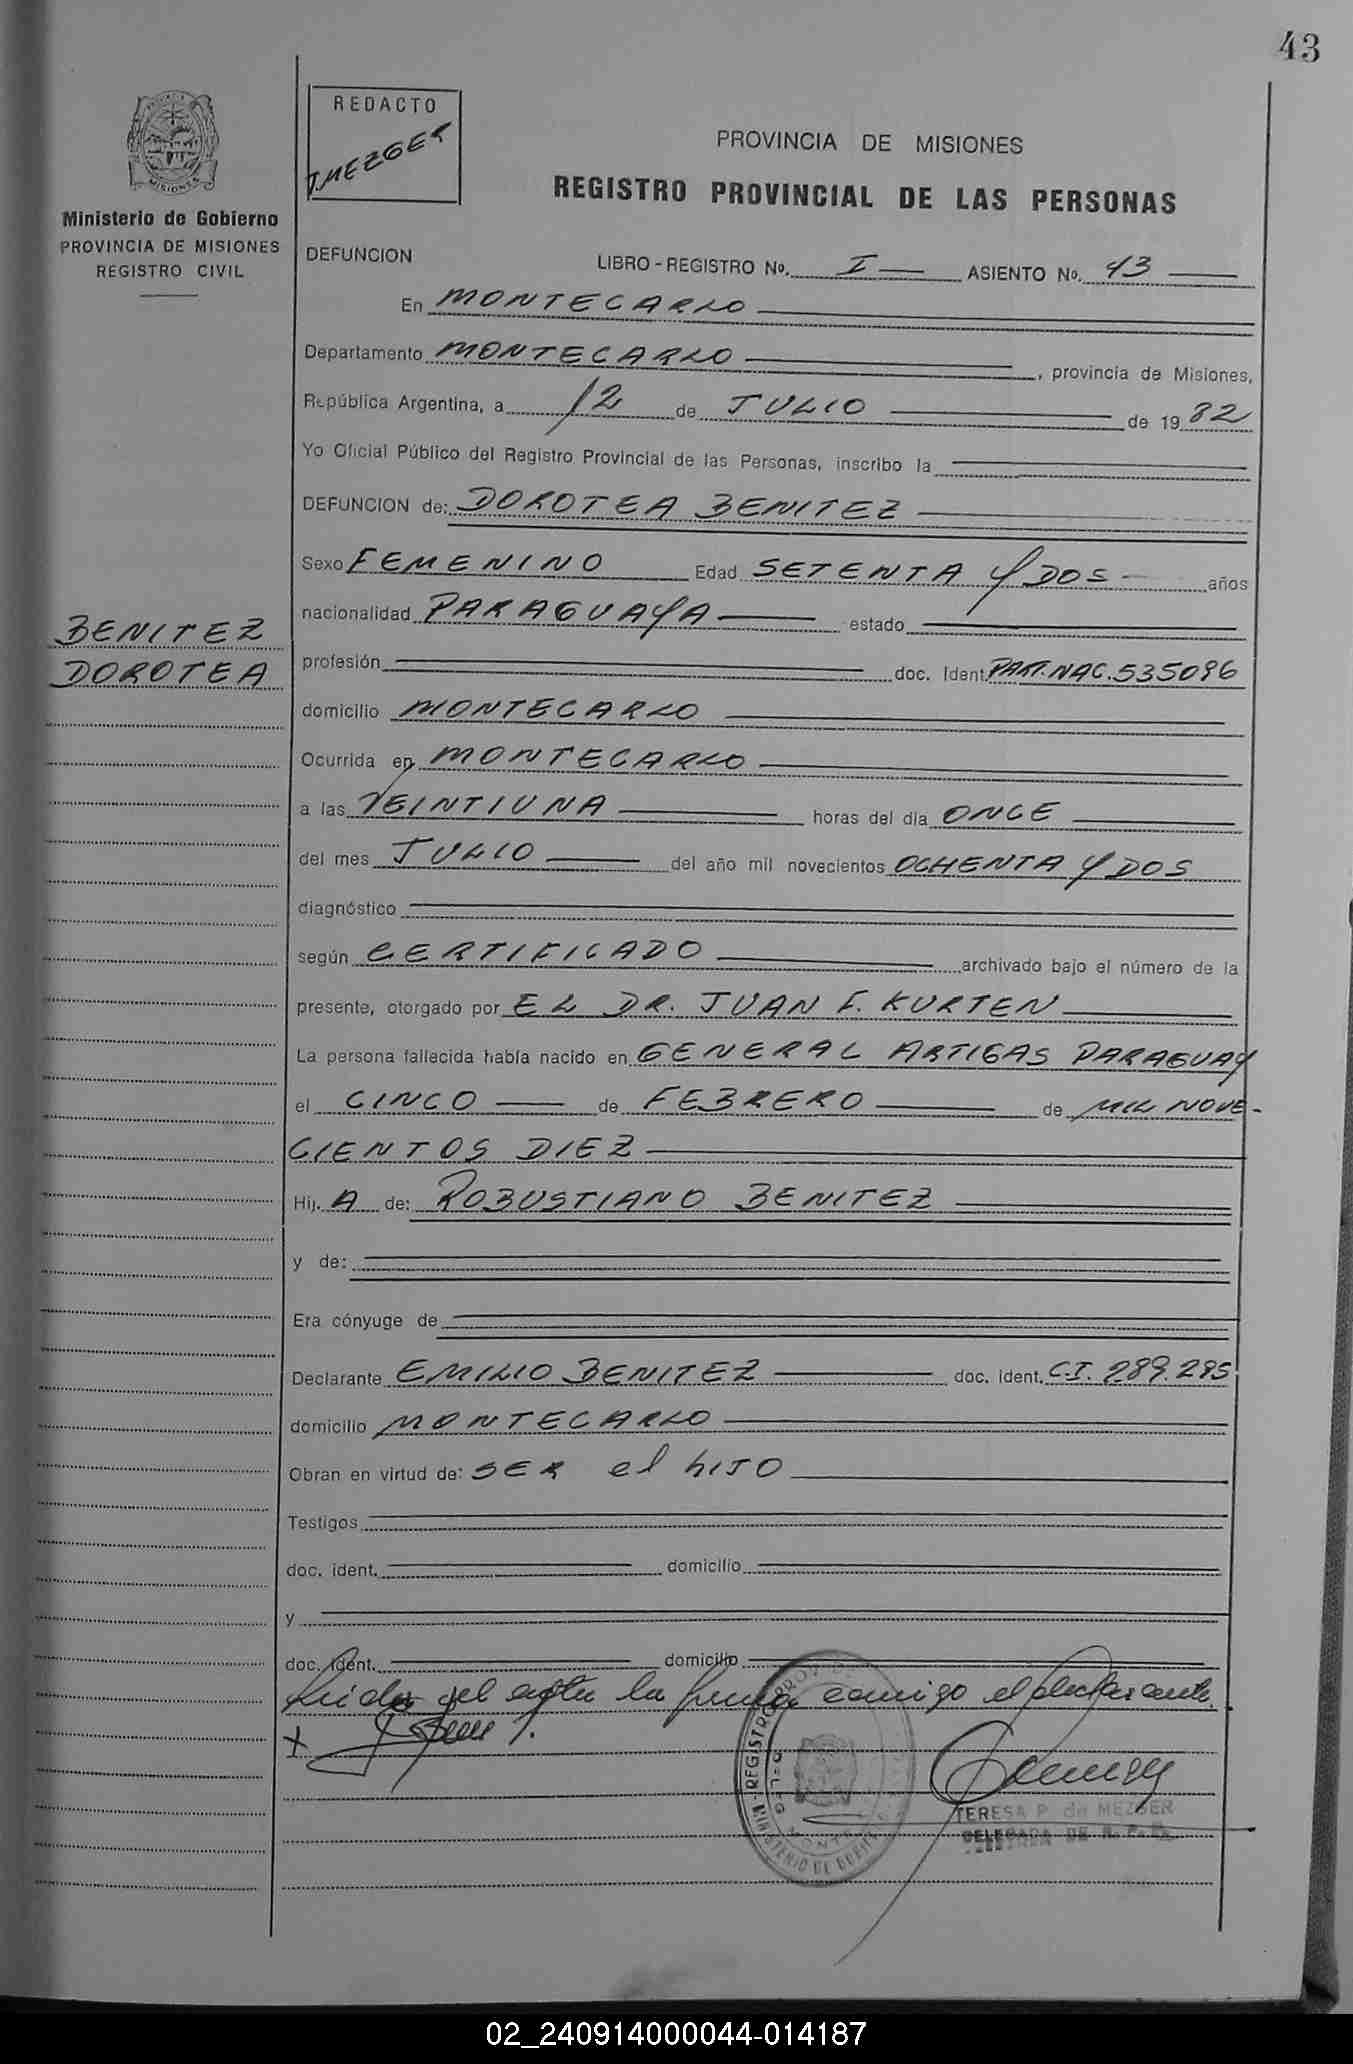 43
REDACTO
T.MEZGER
PROVINCIA DE MISIONES
REGISTRO PROVINCIAL DE LAS PERSONAS
MISIONES
Ministerio de Gobierno
PROVINCIA DE MISIONES
REGISTRO CIVIL
DEFUNCION LIBRO - REGISTRO No. I ASIENTO No. 43
En MONTECARLO
Departamento MONTECARLO, provincia de Misiones,
República Argentina, a 12 de JULIO de 1982
Yo Oficial Público del Registro Provincial de las Personas, inscribo la
DEFUNCION de: DOROTEA BENITEZ
Sexo FEMENINO Edad SETENTA Y DOS años
nacionalidad PARAGUAYA estado
BENITEZ
DOROTEA
profesión doc. Ident. PART.NAC.535096
domicilio MONTECARLO
Ocurrida en MONTECARLO
a las VEINTIUNA horas del día ONCE
del mes JULIO del año mil novecientos OCHENTA Y DOS
diagnóstico
según CERTIFICADO archivado bajo el número de la
presente, otorgado por EL DR. JUAN F. KURTEN
La persona fallecida había nacido en GENERAL ARTIGAS PARAGUAY
el CINCO de FEBRERO de MIL NOVE-
CIENTOS DIEZ
Hij. A de: ROBUSTIANO BENITEZ
y de:
Era cónyuge de
Declarante EMILIO BENITEZ doc. ident. C.I. 289.295
domicilio MONTECARLO
Obran en virtud de: SER el hIJO
Testigos
doc. ident. domicilio
y
doc. ident. domicilio
Leida del acta la firma conmigo el declarante.
TERESA P. de MEZGER
DELEGADA DE R. P. P.
02_240914000044-014187